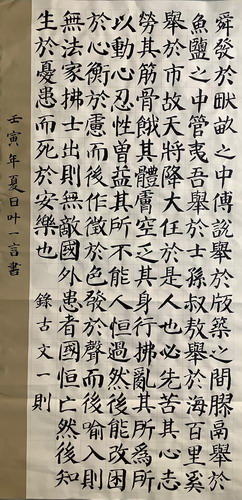 舜發於畎畝之中傅說舉於版築之間膠鬲舉於
魚鹽之中管夷吾舉於士孫叔敖舉於海百里奚
舉於市故天將降大任於是人也必先苦其心志
勞其筋骨餓其體膚空乏其身行拂亂其所為所
以動心忍性曾益其所不能人恒過然後能改困
於心衡於慮而後作徵於色發於聲而後喻入則
無法家拂士出則無敵國外患者國恒亡然後知
生於憂患而死於安樂也 錄古文一則
壬寅年夏日叶一言書